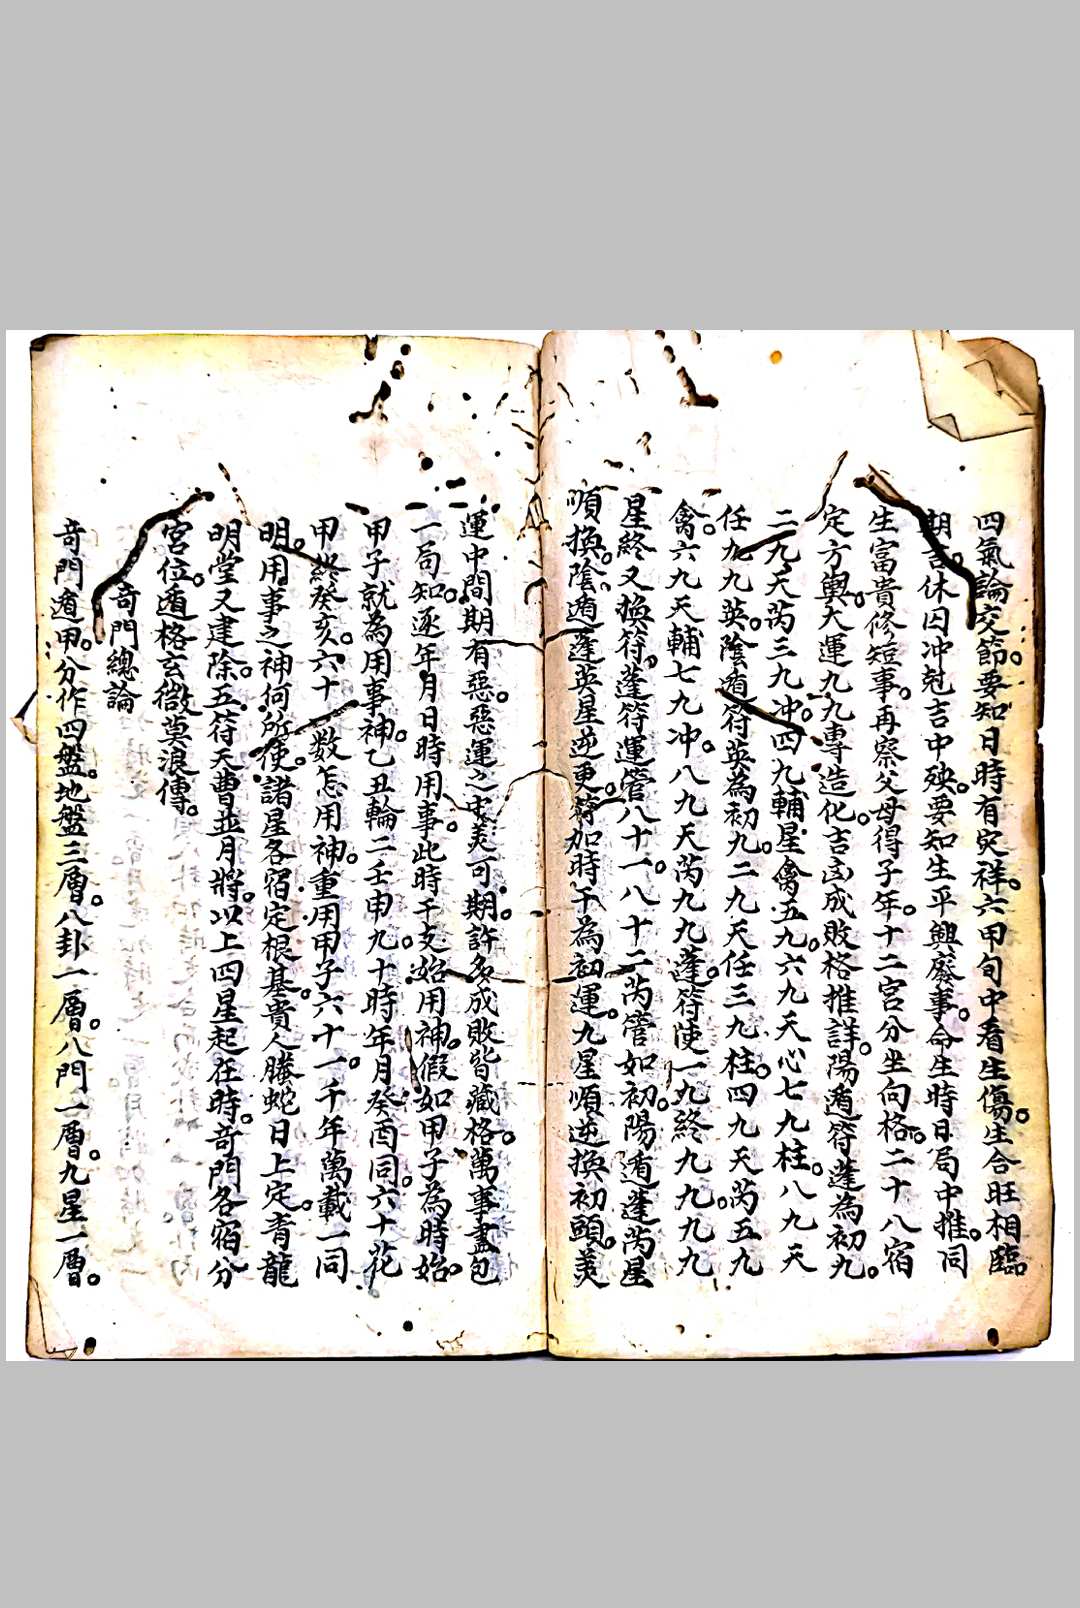 四氣論交節。要知日時有灾祥。六甲旬中看生傷。生合旺相臨
期吉。休囚冲尅吉中殃。要知生平興廢事。命生時日局中推。同
生富貴修短事。再察父母得子年。十二宮分坐向格。二十八宿
定方輿。大運九九專造化。吉凶成敗格推詳。陽遁符蓬為初九。
二九天芮三九冲。四九輔星禽五九。六九天心七九柱。八九天
任九九英。陰遁符英為初九。二九天任三九柱。四九天芮五九
禽。六九天輔七九冲。八九天芮九九蓬。符使一九終九九九九
星終又換符。蓬符運管八十一。八十二芮管如初。陽遁蓬芮星
順換。陰遁蓬英星逆更。符加時干為初運。九星順逆換初頭。美
運中間期有惡。惡運之中美可期。許多成敗皆藏格。萬事盡包
一局知。逐年月日時用事。此時干支始用神。假如甲子為時始。
甲子就為用事神。乙丑輪二壬申九。十時年月癸酉同。六十花
甲終癸亥。六十一数怎用神。重用甲子六十一。千年萬載一同
明。用事之神何所使。諸星各宿定根基。貴人螣蛇日上定。青龍
明堂又建除。五符天曹並月將。以上四星起在時。奇門各宿分
宮位。遁格玄微莫浪傳。
奇門總論
奇門遁甲。分作四盤。地盤三層。八卦一層。八門一層。九星一層。